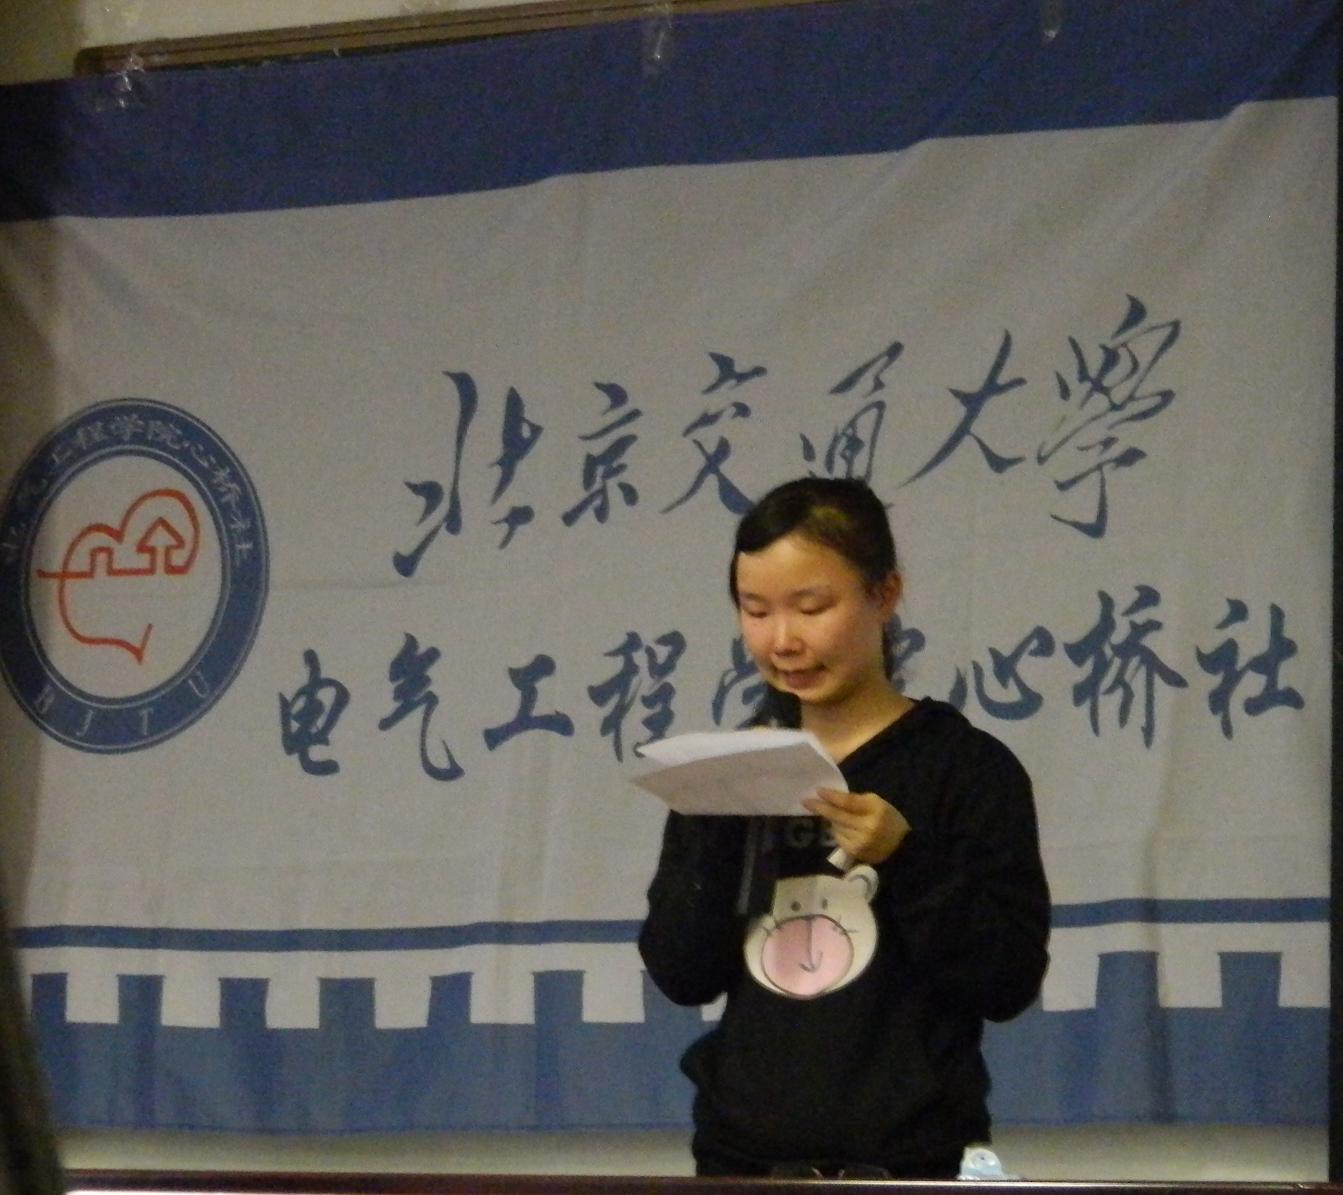 北京交通大學
电气工程学院心桥社
电气工程学院心桥社
BJTU